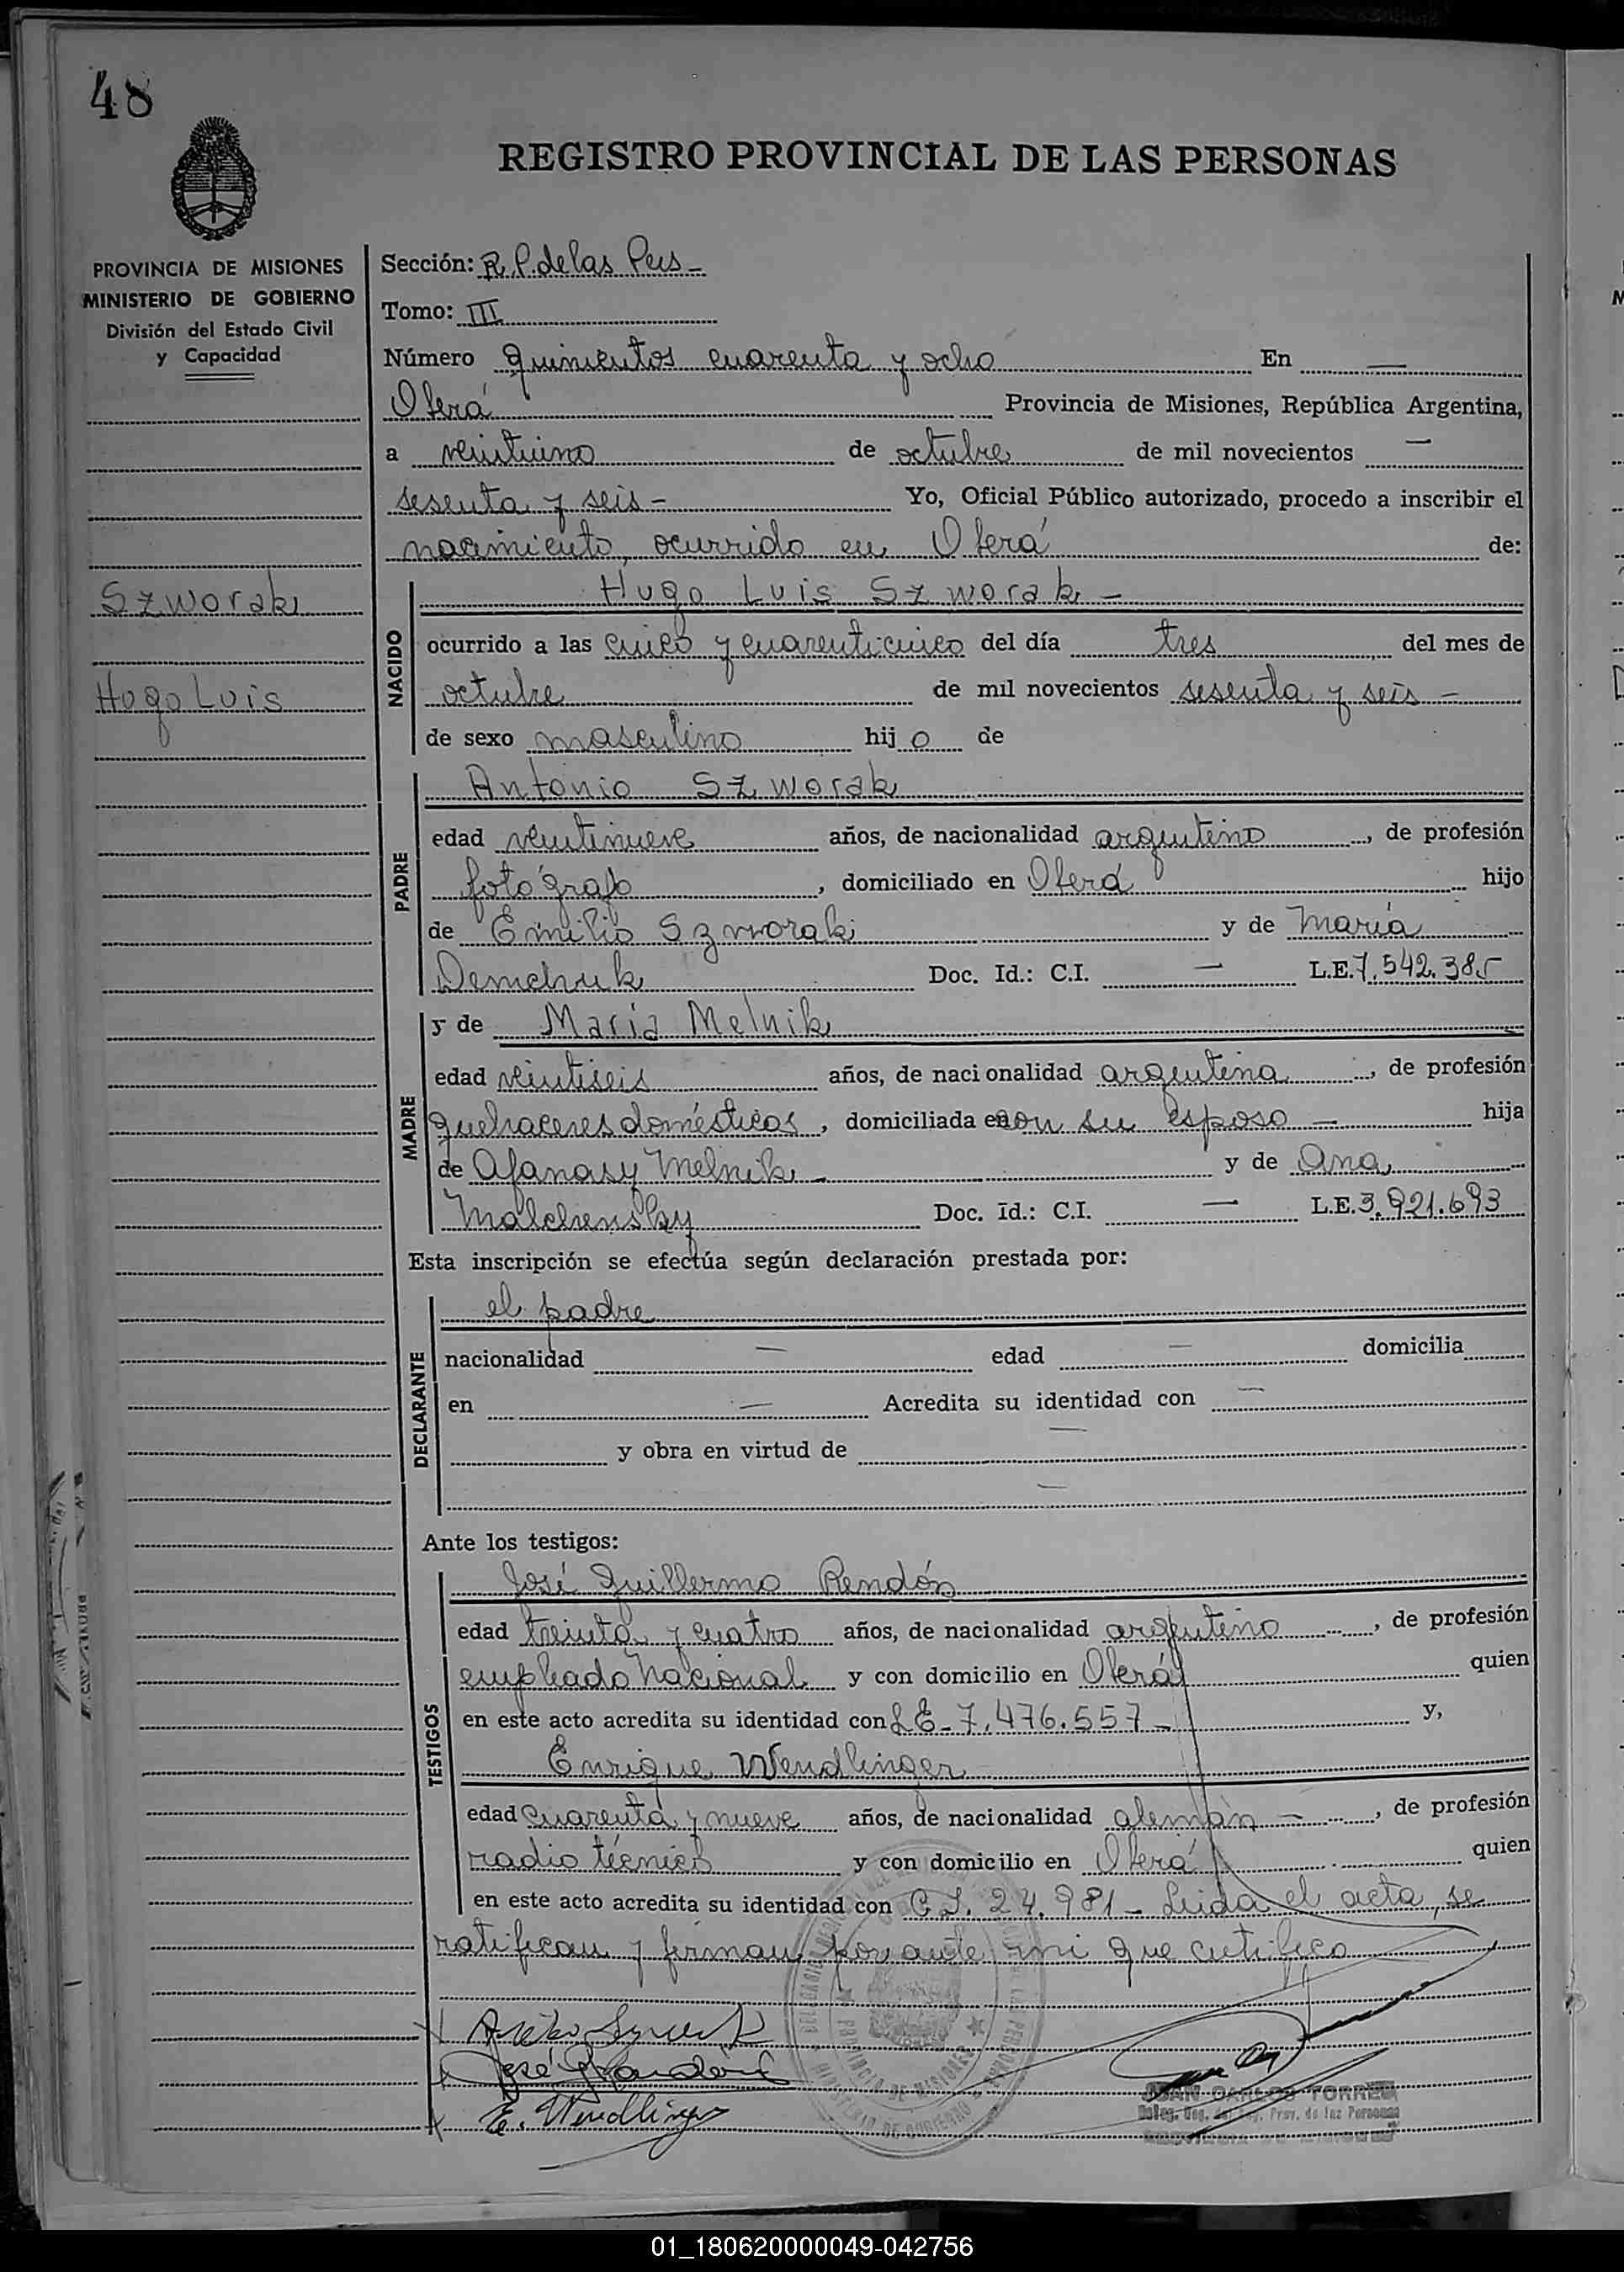 48
REGISTRO PROVINCIAL DE LAS PERSONAS
PROVINCIA DE MISIONES
MINISTERIO DE GOBIERNO
División del Estado Civil
y Capacidad
Szworak
Hugo Luis
Sección: R. P. de las Pers -
Tomo: III
Número quinientos cuarenta y ocho En —
Oberá Provincia de Misiones, República Argentina,
a veintiuno de octubre de mil novecientos —
sesenta y seis - Yo, Oficial Público autorizado, procedo a inscribir el
nacimiento, ocurrido en Oberá de:
NACIDO
Hugo Luis Szworak -
ocurrido a las cinco y cuarenticinco del día tres del mes de
octubre de mil novecientos sesenta y seis -
de sexo masculino hijo de
PADRE
Antonio Szworak
edad veintinueve años, de nacionalidad argentino, de profesión
fotógrafo, domiciliado en Oberá hijo
de Emilio Szworak y de María
Demchuk Doc. Id.: C.I. — L.E. 7.542.385
MADRE
y de María Melnik
edad veintiseis años, de nacionalidad argentina, de profesión
quehaceres domésticos, domiciliada en con su esposo — hija
de Afanasy Melnik - y de Ana
Malchensky Doc. Id.: C.I. — L.E. 3.921.693
Esta inscripción se efectúa según declaración prestada por:
DECLARANTE
el padre
nacionalidad — edad — domicilia
en — Acredita su identidad con —
y obra en virtud de —
—
Ante los testigos:
TESTIGOS
José Guillermo Rendón
edad treinta y cuatro años, de nacionalidad argentino, de profesión
empleado nacional y con domicilio en Oberá quien
en este acto acredita su identidad con LE - 7.476.557 - y,
Enrique Wendlinger
edad cuarenta y nueve años, de nacionalidad alemán -, de profesión
radio técnico y con domicilio en Oberá quien
en este acto acredita su identidad con C.I. 24.981 - Leida el acta, se
ratifican y firman por ante mi que certifico
E. Wendlinger
PROVINCIA DE MISIONES
MINISTERIO DE GOBIERNO
JUAN CARLOS TORRES
Prov. de las Personas
01_180620000049-042756